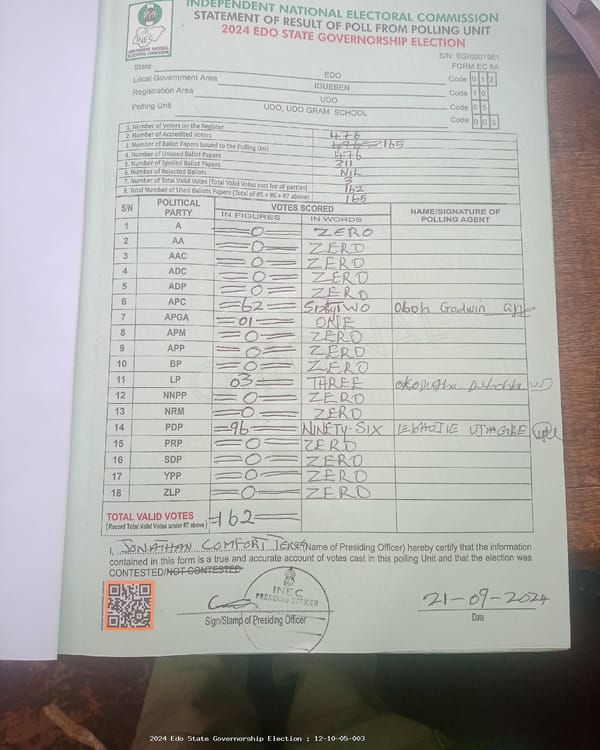 INDEPENDENT NATIONAL ELECTORAL COMMISSION
STATEMENT OF RESULT OF POLL FROM POLLING UNIT
2024 EDO STATE GOVERNORSHIP ELECTION
INEC
INDEPENDENT NATIONAL ELECTORAL COMMISSION
S/N: EG/0001961
FORM EC 8A
State EDO Code 0 1 2
Local Government Area IGUEBEN Code 1 0
Registration Area UDO Code 0 5
Polling Unit UDO, UDO GRAM. SCHOOL Code 0 0 3
1. Number of Voters on the Register 476
2. Number of Accredited Voters 165
3. Number of Ballot Papers Issued to the Polling Unit 476
4. Number of Unused Ballot Papers 311
5. Number of Spoiled Ballot Papers NIL
6. Number of Rejected Ballots 3
7. Number of Total Valid Votes (Total Valid Votes cast for all parties) 162
8. Total Number of Used Ballots Papers (Total of #5 + #6 + #7 above) 165
S/N POLITICAL PARTY VOTES SCORED NAME/SIGNATURE OF POLLING AGENT
IN FIGURES IN WORDS
1 A =0= ZERO
2 AA =0= ZERO
3 AAC =0= ZERO
4 ADC =0= ZERO
5 ADP =0= ZERO
6 APC =62= SIXTYTWO Oboh Godwin
7 APGA =01= ONE
8 APM =0= ZERO
9 APP =0= ZERO
10 BP =0= ZERO
11 LP 03= THREE
12 NNPP =0= ZERO
13 NRM =0= ZERO
14 PDP =96= NINETY-SIX
15 PRP =0= ZERO
16 SDP =0= ZERO
17 YPP =0= ZERO
18 ZLP =0= ZERO
TOTAL VALID VOTES =162=
(Record Total Valid Votes under #7 above)
I, JONATHAN COMFORT (Name of Presiding Officer) hereby certify that the information
contained in this form is a true and accurate account of votes cast in this polling Unit and that the election was
CONTESTED/NOT CONTESTED
INEC
PRESIDING OFFICER
21-09-2024
Sign/Stamp of Presiding Officer Date
2024 Edo State Governorship Election : 12-10-05-003